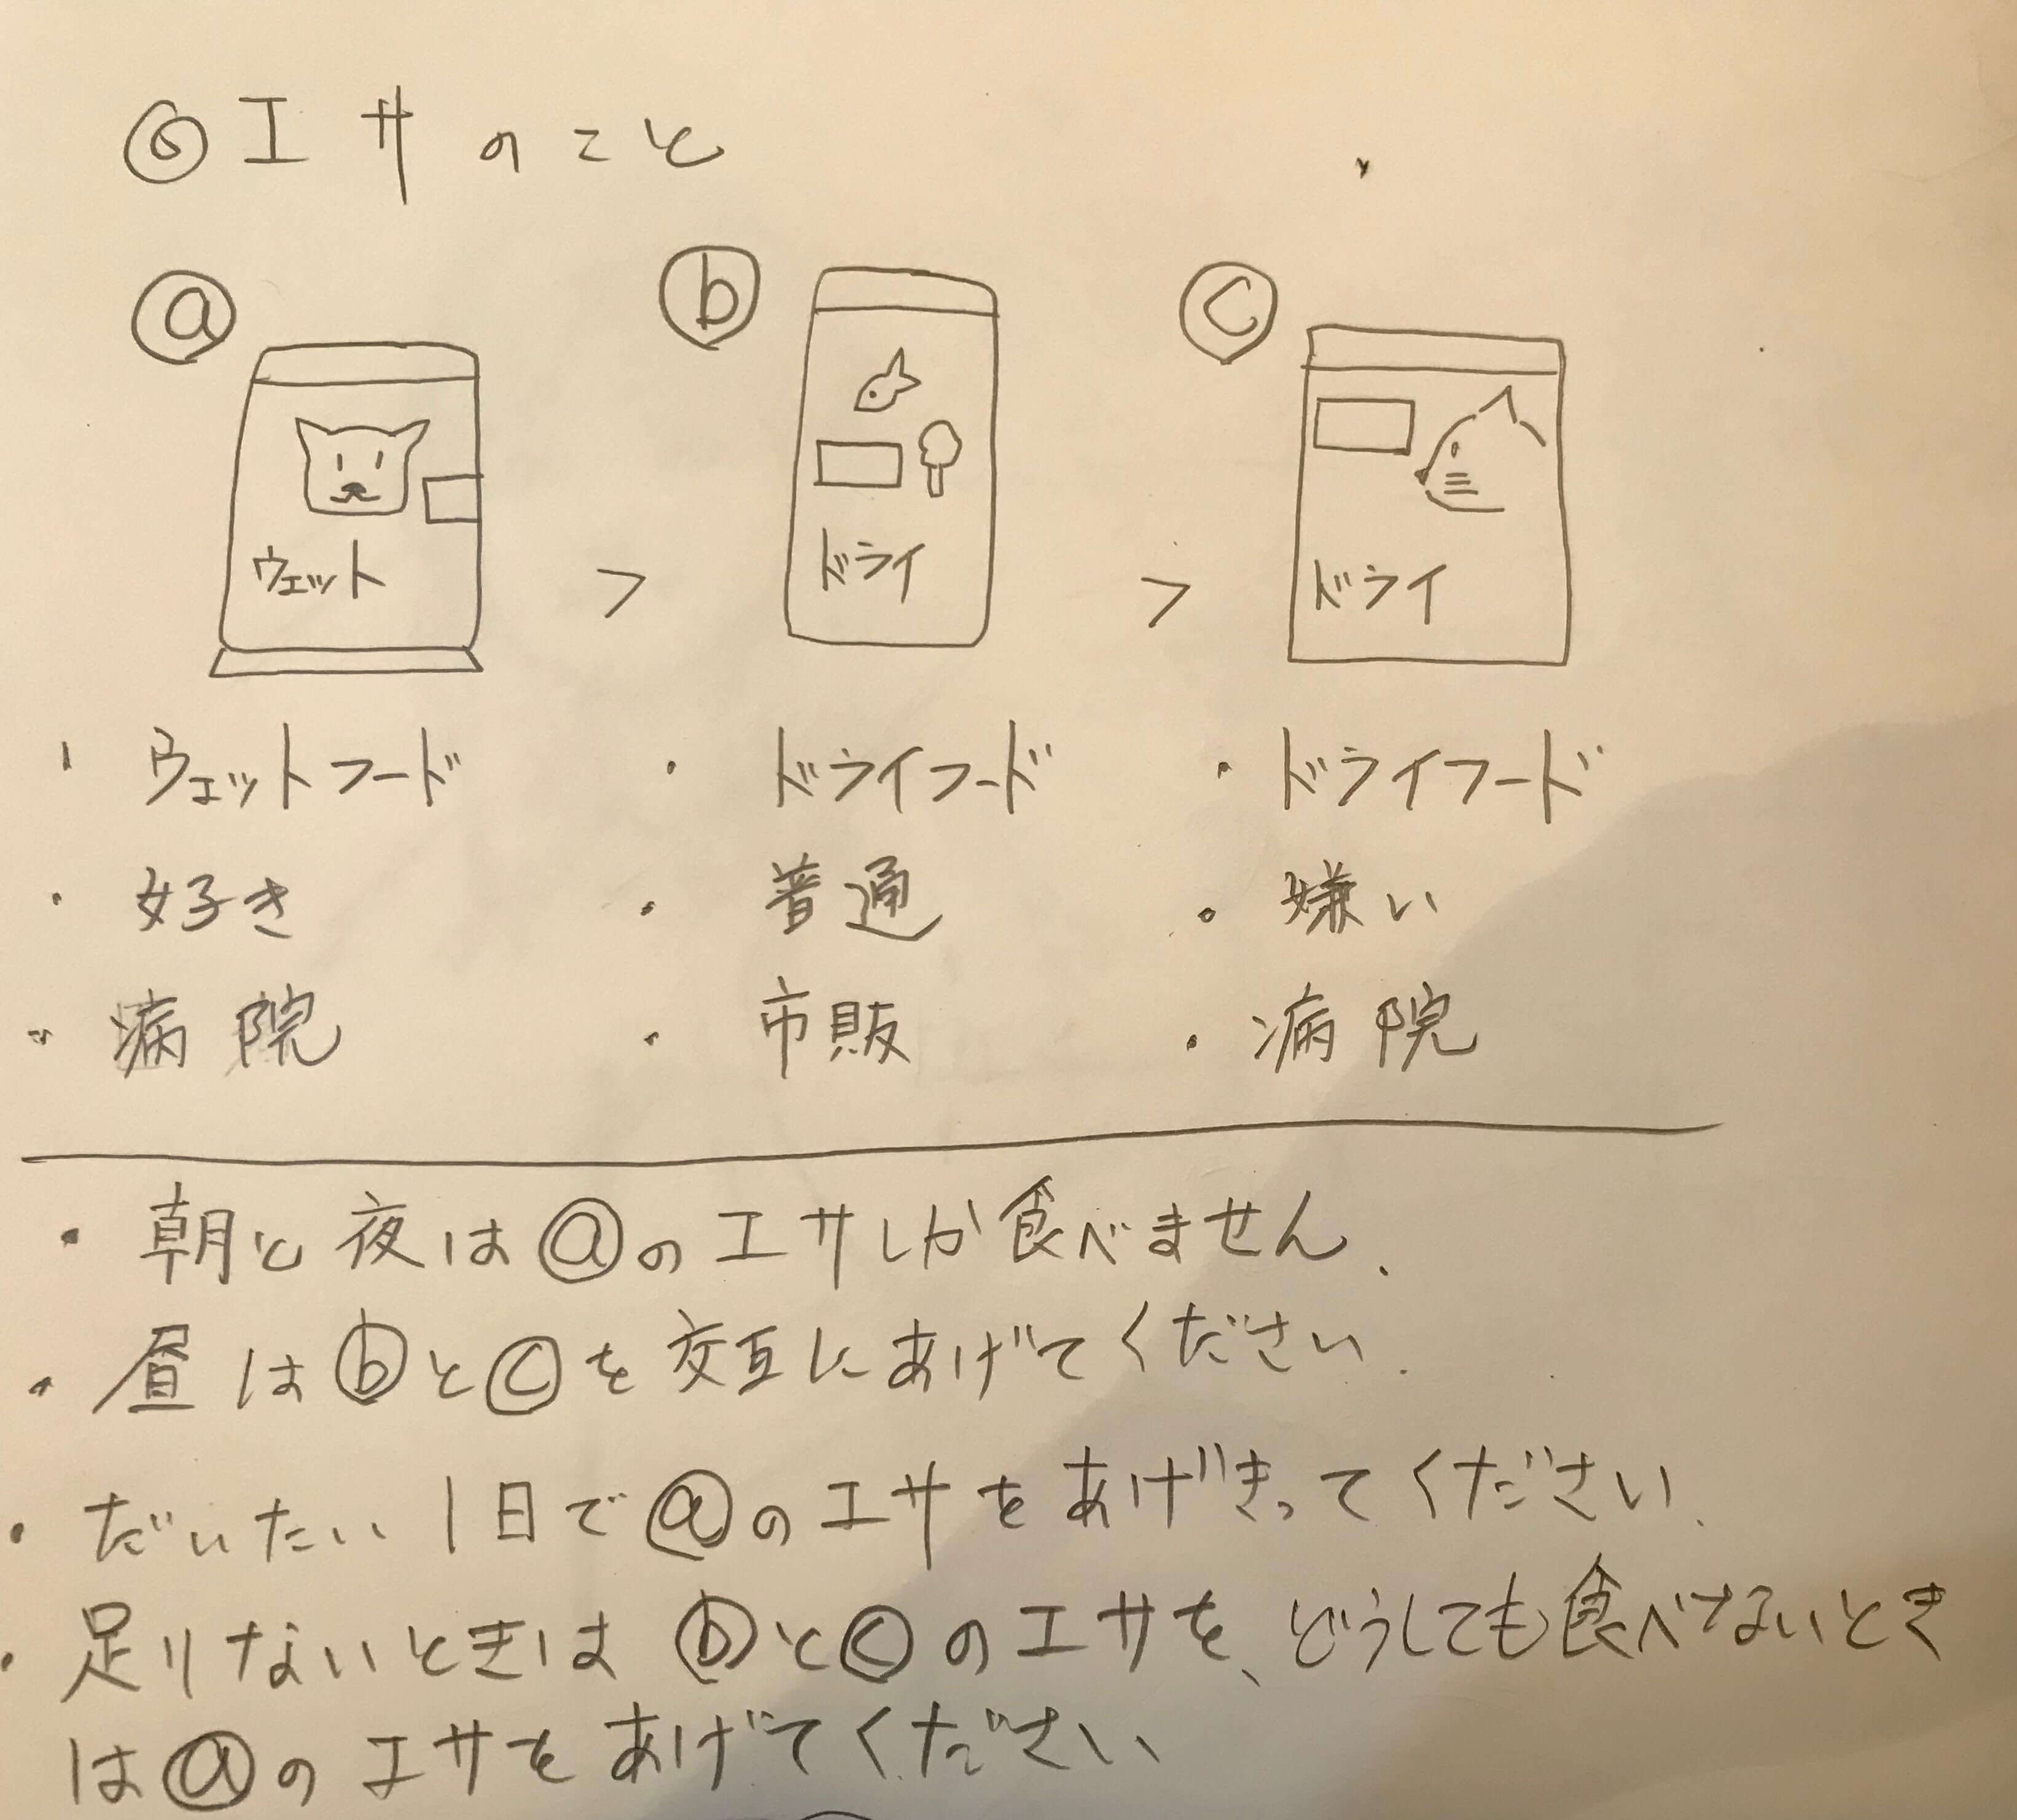 ◎エサのこと
ⓐ ⓑ ⓒ
ウェット > ドライ > ドライ
・ウェットフード ・ドライフード ・ドライフード
・好き ・普通 ・嫌い
・病院 ・市販 ・病院
・朝と夜はⓐのエサしか食べません.
・昼はⓑとⓒを交互にあげてください.
・だいたい1日でⓐのエサをあげきってください.
・足りないときはⓑとⓒのエサを、どうしても食べないとき
はⓐのエサをあげてください